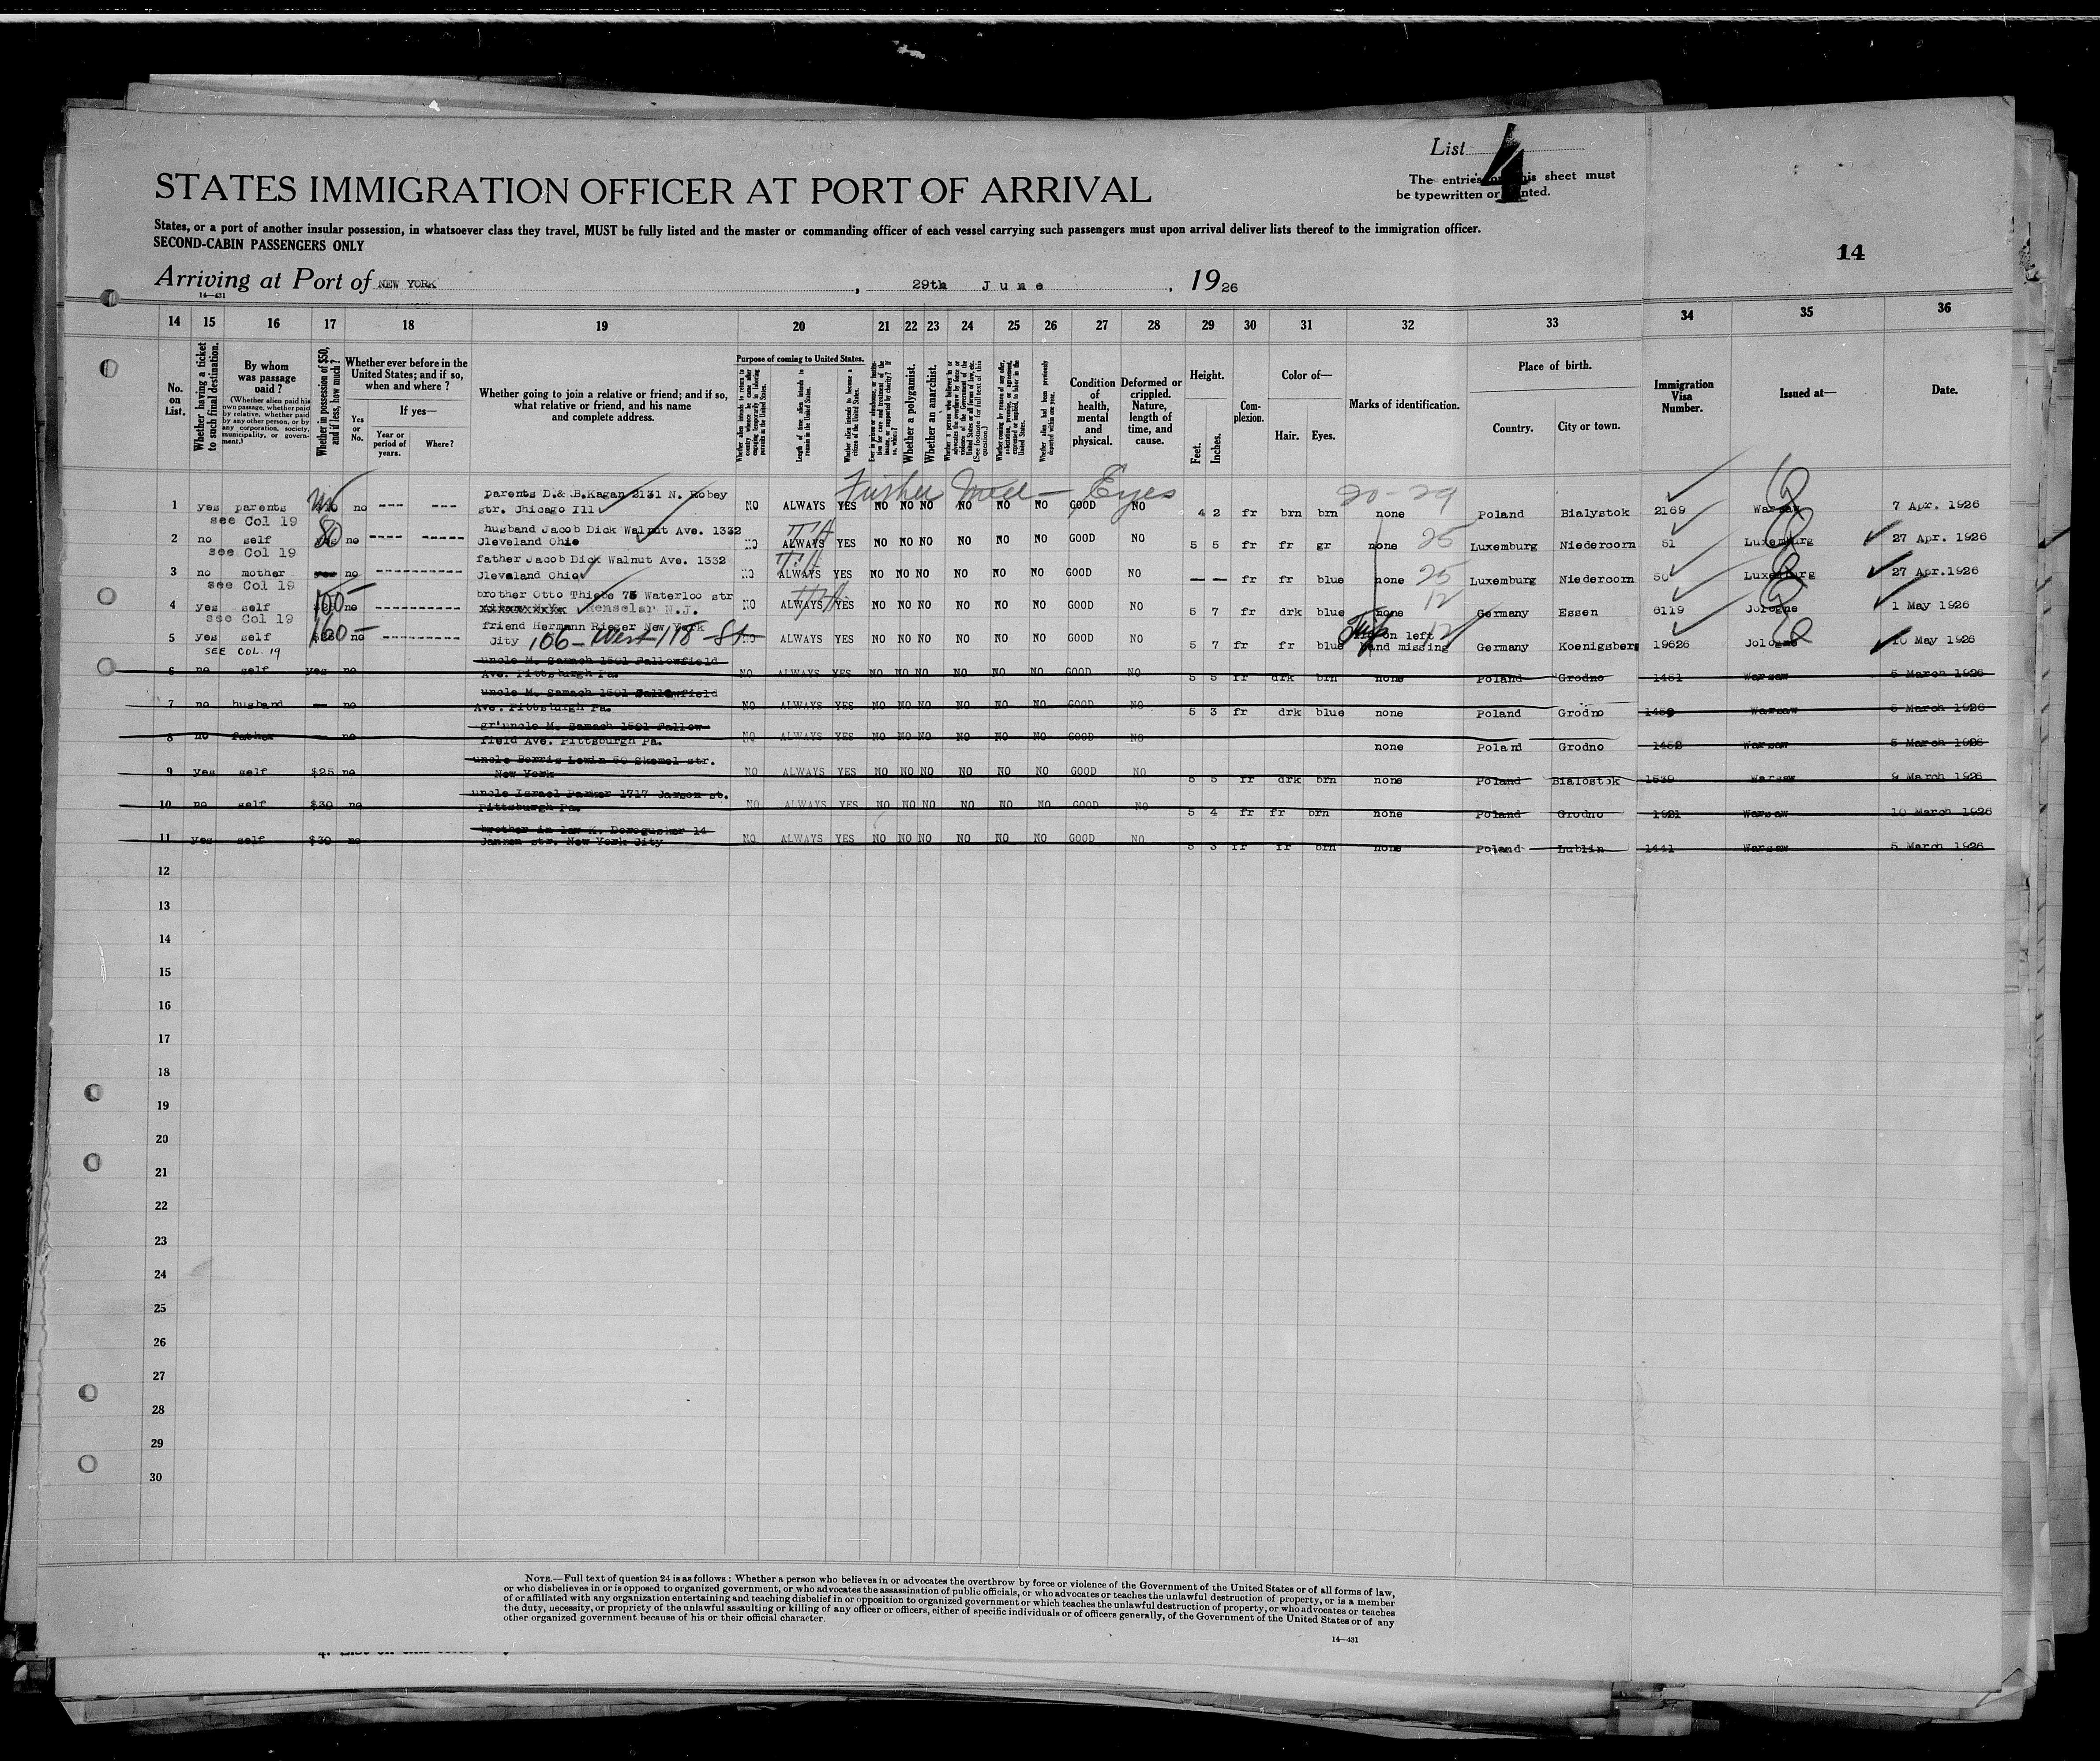 List 4
The entries on this sheet must
be typewritten or printed.
STATES IMMIGRATION OFFICER AT PORT OF ARRIVAL
States, or a port of another insular possession, in whatsoever class they travel, MUST be fully listed and the master or commanding officer of each vessel carrying such passengers must upon arrival deliver lists thereof to the immigration officer.
SECOND-CABIN PASSENGERS ONLY
14
Arriving at Port of NEW YORK, 29th June, 1926
14—431
14 15 16 17 18 19 20 21 22 23 24 25 26 27 28 29 30 31 32 33 34 35 36
No. on List.
Whether having a ticket to such final destination.
By whom was passage paid?
(Whether alien paid his own passage, whether paid by relative, whether paid by any other person, or by any corporation, society, municipality, or government.)
Whether in possession of $50, and if less, how much?
Whether ever before in the United States; and if so, when and where?
Yes or No.
If yes—
Year or period of years.
Where?
Whether going to join a relative or friend; and if so, what relative or friend, and his name and complete address.
Purpose of coming to United States.
Whether alien intends to return to country whence he came after engaging temporarily in laboring pursuits in the United States.
Length of time alien intends to remain in the United States.
Whether alien intends to become a citizen of the United States.
Whether a polygamist.
Whether an anarchist.
Condition of health, mental and physical.
Deformed or crippled. Nature, length of time, and cause.
Height.
Feet.
Inches.
Complexion.
Color of—
Hair.
Eyes.
Marks of identification.
Place of birth.
Country.
City or town.
Immigration Visa Number.
Issued at—
Date.
Eyes
20-29
1 yes parents no --- --- parents D.& B.Kagan 2131 N. Robey
see Col 19 str. Chicago Ill NO ALWAYS YES NO NO NO NO NO NO GOOD NO 4 2 fr brn brn none Poland Bialystok 2169 Warsaw 7 Apr. 1926
2 no self 80 no ---- ----- husband Jacob Dick Walnut Ave. 1332
see Col 19 Cleveland Ohio NO ALWAYS YES NO NO NO NO NO NO GOOD NO 5 5 fr fr gr none 25 Luxemburg Niedercorn 51 Luxemburg 27 Apr. 1926
3 no mother yes no ---------- father Jacob Dick Walnut Ave. 1332
see Col 19 Cleveland Ohio NO ALWAYS YES NO NO NO NO NO NO GOOD NO — — fr fr blue none 25 Luxemburg Niedercorn 50 Luxemburg 27 Apr.1926
4 yes self 100- no ---------- brother Otto Thiebe 75 Waterloo str
see Col 19 Renselar N.J. NO ALWAYS YES NO NO NO NO NO NO GOOD NO 5 7 fr drk blue none 12 Germany Essen 6119 Jologne 1 May 1926
5 yes self 160- no ---------- friend Hermann Rieger New York
SEE COL. 19 City 106- West 118 -St- NO ALWAYS YES NO NO NO NO NO NO GOOD NO 5 7 fr fr blue Tip on left 12
hand missing Germany Koenigsberg 19626 Jologne 10 May 1926
6 no self yes no uncle M. Samach 1501 Fallowfield
Ave. Pittsburgh Pa. NO ALWAYS YES NO NO NO NO NO NO GOOD NO 5 5 fr drk brn none Poland Grodno 1451 Warsaw 5 March 1926
7 no husband — no uncle M. Samach 1501 Fallowfield
Ave. Pittsburgh Pa. NO ALWAYS YES NO NO NO NO NO NO GOOD NO 5 3 fr drk blue none Poland Grodno 1459 Warsaw 5 March 1926
8 no father — no gr'uncle M. Samach 1501 Fallow
field Ave. Pittsburgh Pa. NO ALWAYS YES NO NO NO NO NO NO GOOD NO none Poland Grodno 1452 Warsaw 5 March 1926
9 yes self $25 no uncle Berris Lewin 50 Skemel str.
New York NO ALWAYS YES NO NO NO NO NO NO GOOD NO 5 5 fr drk brn none Poland Bialostok 1539 Warsaw 9 March 1926
10 no self $30 no uncle Israel Parker 1717 Jarson st.
Pittsburgh Pa. NO ALWAYS YES NO NO NO NO NO NO GOOD NO 5 4 fr fr brn none Poland Grodno 1921 Warsaw 10 March 1926
11 yes self $30 no brother in law K. Deregusker 14
Jannen str. New York City NO ALWAYS YES NO NO NO NO NO NO GOOD NO 5 3 fr fr brn none Poland Lublin 1441 Warsaw 5 March 1926
12
13
14
15
16
17
18
19
20
21
22
23
24
25
26
27
28
29
30
NOTE.—Full text of question 24 is as follows: Whether a person who believes in or advocates the overthrow by force or violence of the Government of the United States or of all forms of law,
or who disbelieves in or is opposed to organized government, or who advocates the assassination of public officials, or who advocates or teaches the unlawful destruction of property, or is a member
of or affiliated with any organization entertaining and teaching disbelief in or opposition to organized government or which teaches the unlawful destruction of property, or who advocates or teaches
the duty, necessity, or propriety of the unlawful assaulting or killing of any officer or officers, either of specific individuals or of officers generally, of the Government of the United States or of any
other organized government because of his or their official character.
14—431